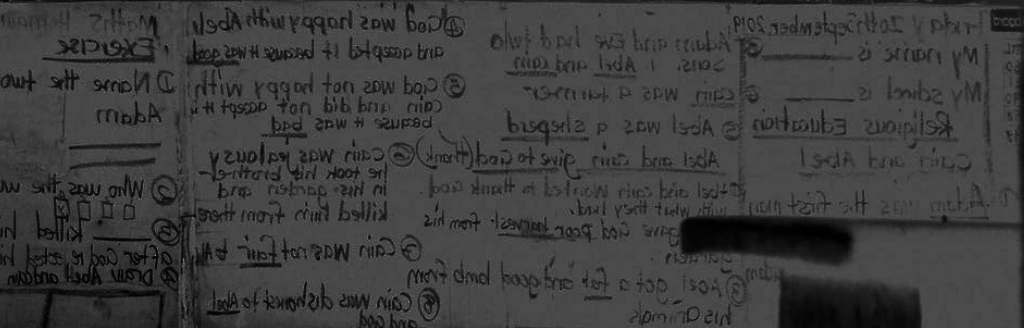 Friday 20th September 2019
My name is
My school is
Religious Education
Cain and Abel
Adam was the first man
Adam and Eve had two
sons. 1 Abel and cain
cain was a farmer
Abel was a sheperd
Abel and cain give to God (thank)
Abel and cain wanted to thank God
with what they had.
gave God poor harvest from his
garden
Abel got a fat and good lamb from
his animals
God was happy with Abel
and accepted it because it was good
God was not happy with
cain and did not accept it
because it was bad
cain was jealousy
he took his brother
in his garden and
killed him from there
Cain was not fair to
Cain was dishonest to Abel
and God
Maths
Exercise
1) Name the two
Adam
2) Who was the
killed
after God rejected his
Draw Abel and cain